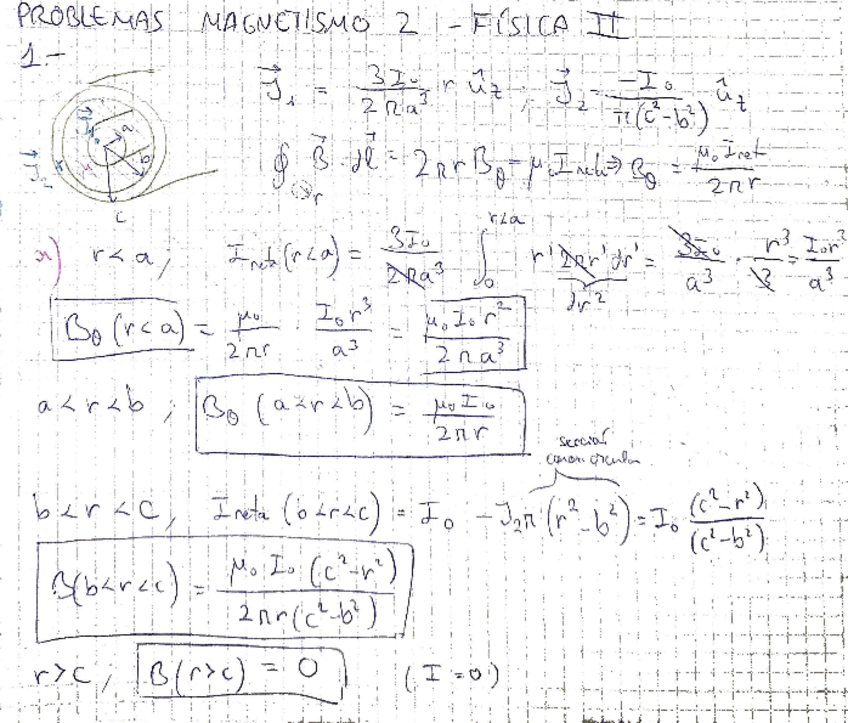 PROBLEMAS MAGNETISMO 2 - FÍSICA II
1.-
J⃗₁ = 3I₀/2πa³ r û_z ; J⃗₂ = -I₀/π(c²-b²) û_z
J⃗₁ a
J⃗₂ b
c
∮ B⃗·dl⃗ = 2πr B_θ = μ₀ I neta ⇒ B_θ = μ₀ I net/2πr
r
r<a ; I neta (r<a) = 3I₀/2πa³ ∫₀^{r<a} r' 2πr' dr' = 3I₀/a³ · r³/3 = I₀r³/a³
B_θ (r<a) = μ₀/2πr · I₀r³/a³ = μ₀I₀r²/2πa³
a<r<b ; B_θ (a<r<b) = μ₀I₀/2πr
sección
b<r<c, I neta (b<r<c) = I₀ - J₂π(r²-b²) = I₀ (c²-r²)/(c²-b²)
B(b<r<c) = μ₀I₀(c²-r²)/2πr(c²-b²)
r>c ; B(r>c) = 0 (I=0)